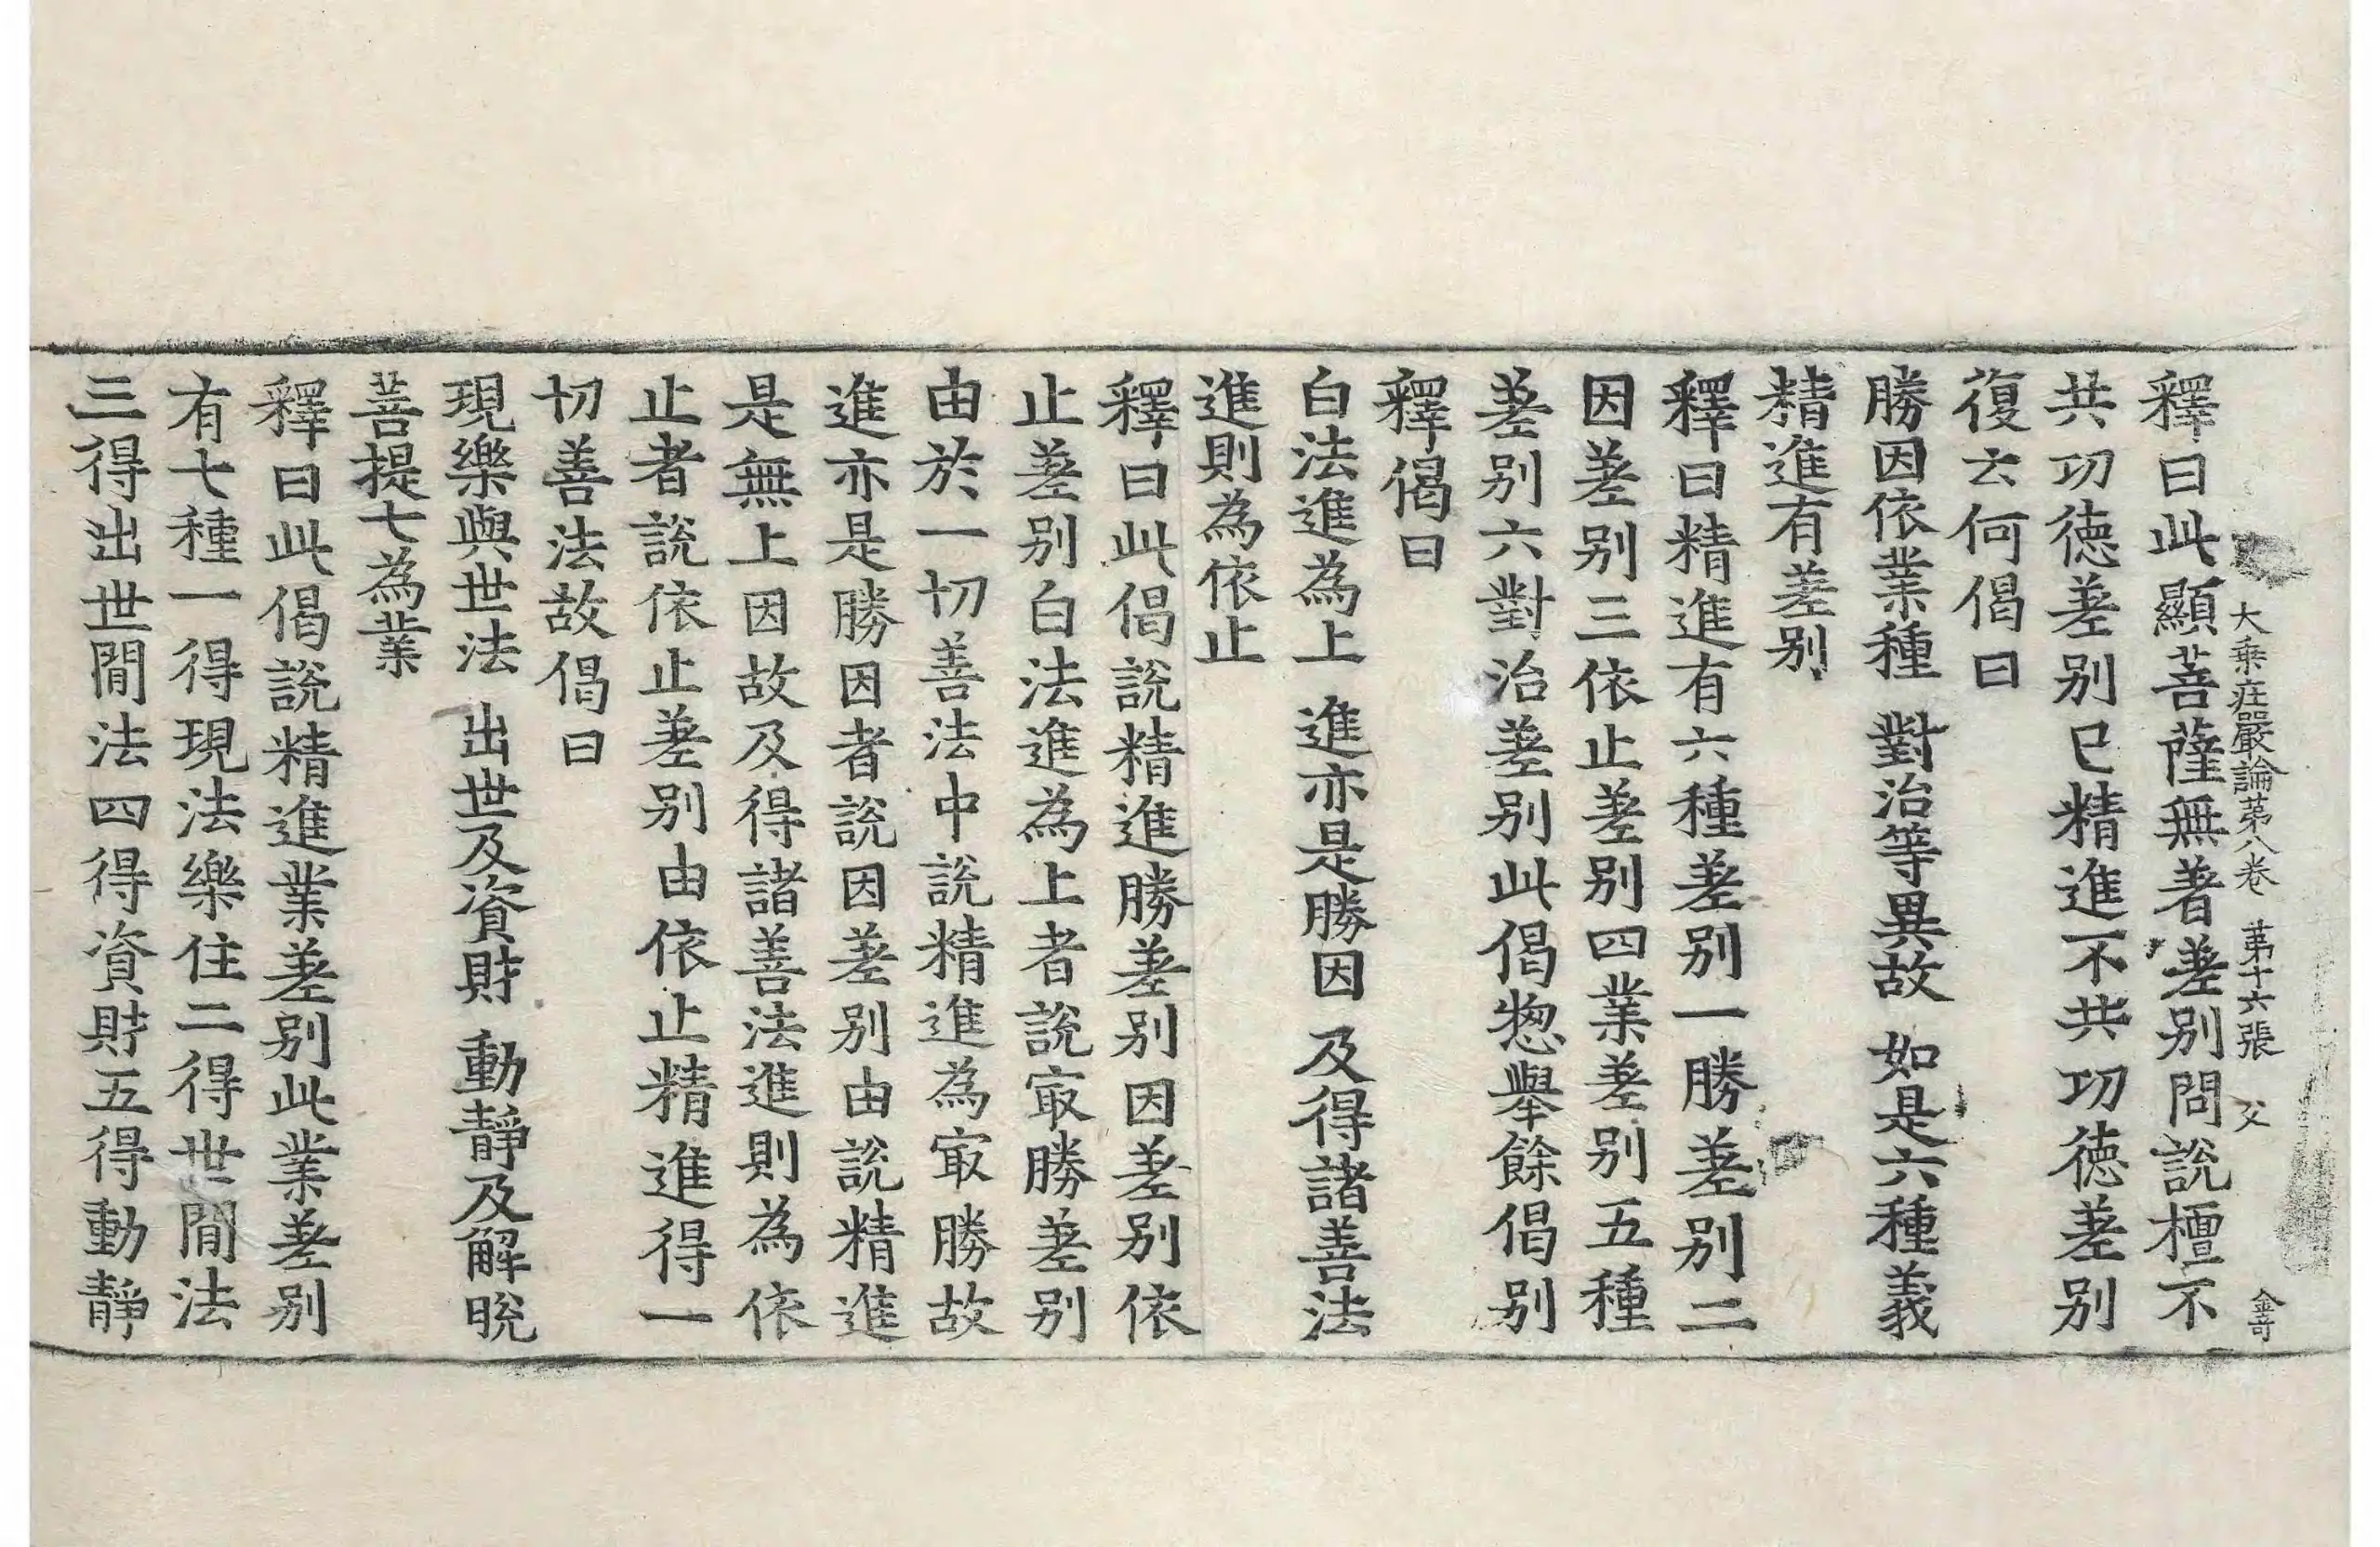 大乗庄嚴論苐八卷　苐十六張　父　金奇
釋曰此顯菩薩無著差别問說檀不
共功徳差别已精進不共功徳差别
復云何偈曰
勝因依業種　對治等異故　如是六種義
精進有差别
釋曰精進有六種差别一勝差别二
因差别三依止差别四業差别五種
差别六對治差别此偈惣舉餘偈别
釋偈曰
白法進為上　進亦是勝因　及得諸善法
進則為依止
釋曰此偈說精進勝差别因差别依
止差别白法進為上者說㝡勝差别
由於一切善法中說精進為㝡勝故
進亦是勝因者說因差别由說精進
是無上因故及得諸善法進則為依
止者說依止差别由依止精進得一
切善法故偈曰
現樂與世法　出世及資財　動靜及解脫
菩提七為業
釋曰此偈說精進業差别此業差别
有七種一得現法樂住二得世間法
三得出世間法四得資財五得動靜